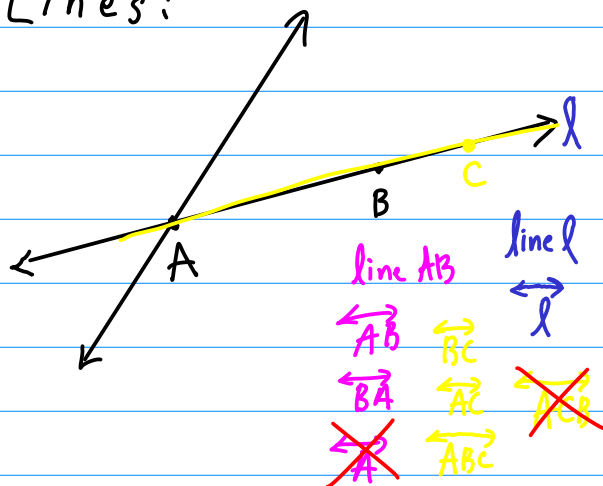 Lines:
l
C
B
A
line l
line AB
↔l
↔AB
↔BC
↔BA
↔AC
↔ACB
↔A
↔ABC